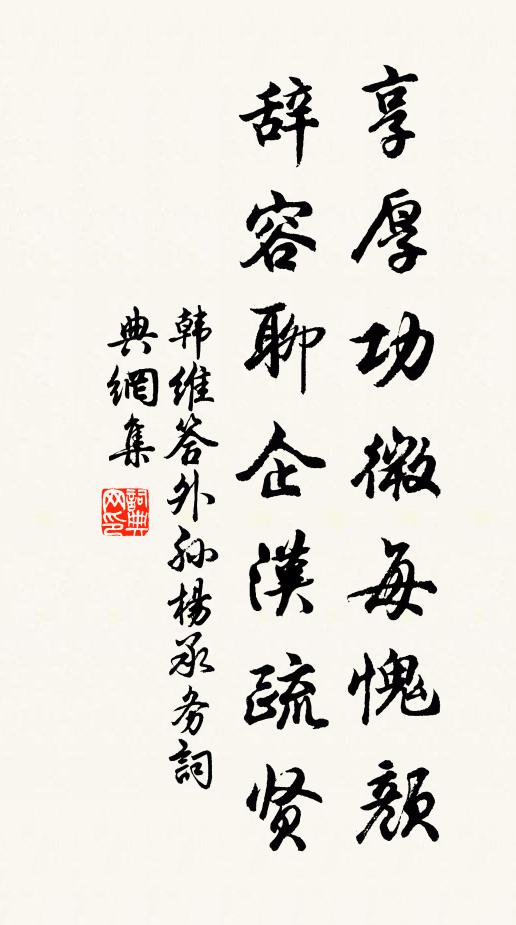 享厚功微每愧颜
辞容聊企漢疏贤
韩维答外孙楊承务詞
典網集
詞典网印